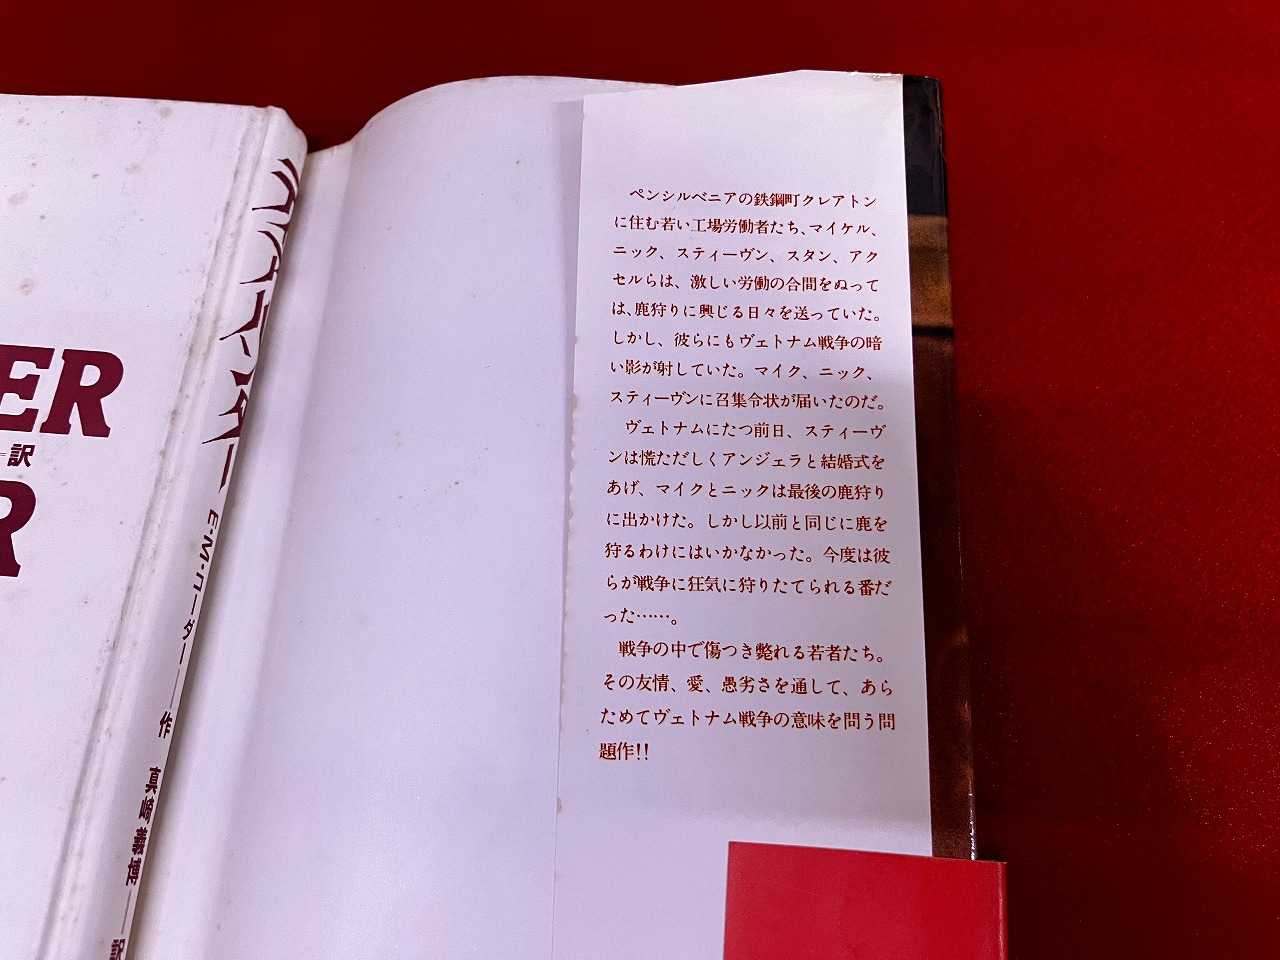 ER
訳
R
ディア・ハンター
E・M・コーダー――作 真崎義博――訳
ペンシルベニアの鉄鋼町クレアトン
に住む若い工場労働者たち、マイケル、
ニック、スティーヴン、スタン、アク
セルらは、激しい労働の合間をぬって
は、鹿狩りに興じる日々を送っていた。
しかし、彼らにもヴェトナム戦争の暗
い影が射していた。マイク、ニック、
スティーヴンに召集令状が届いたのだ。
ヴェトナムにたつ前日、スティーヴ
ンは慌ただしくアンジェラと結婚式を
あげ、マイクとニックは最後の鹿狩り
に出かけた。しかし以前と同じに鹿を
狩るわけにはいかなかった。今度は彼
らが戦争に狂気に狩りたてられる番だ
った……。
戦争の中で傷つき斃れる若者たち。
その友情、愛、愚劣さを通して、あら
ためてヴェトナム戦争の意味を問う問
題作!!